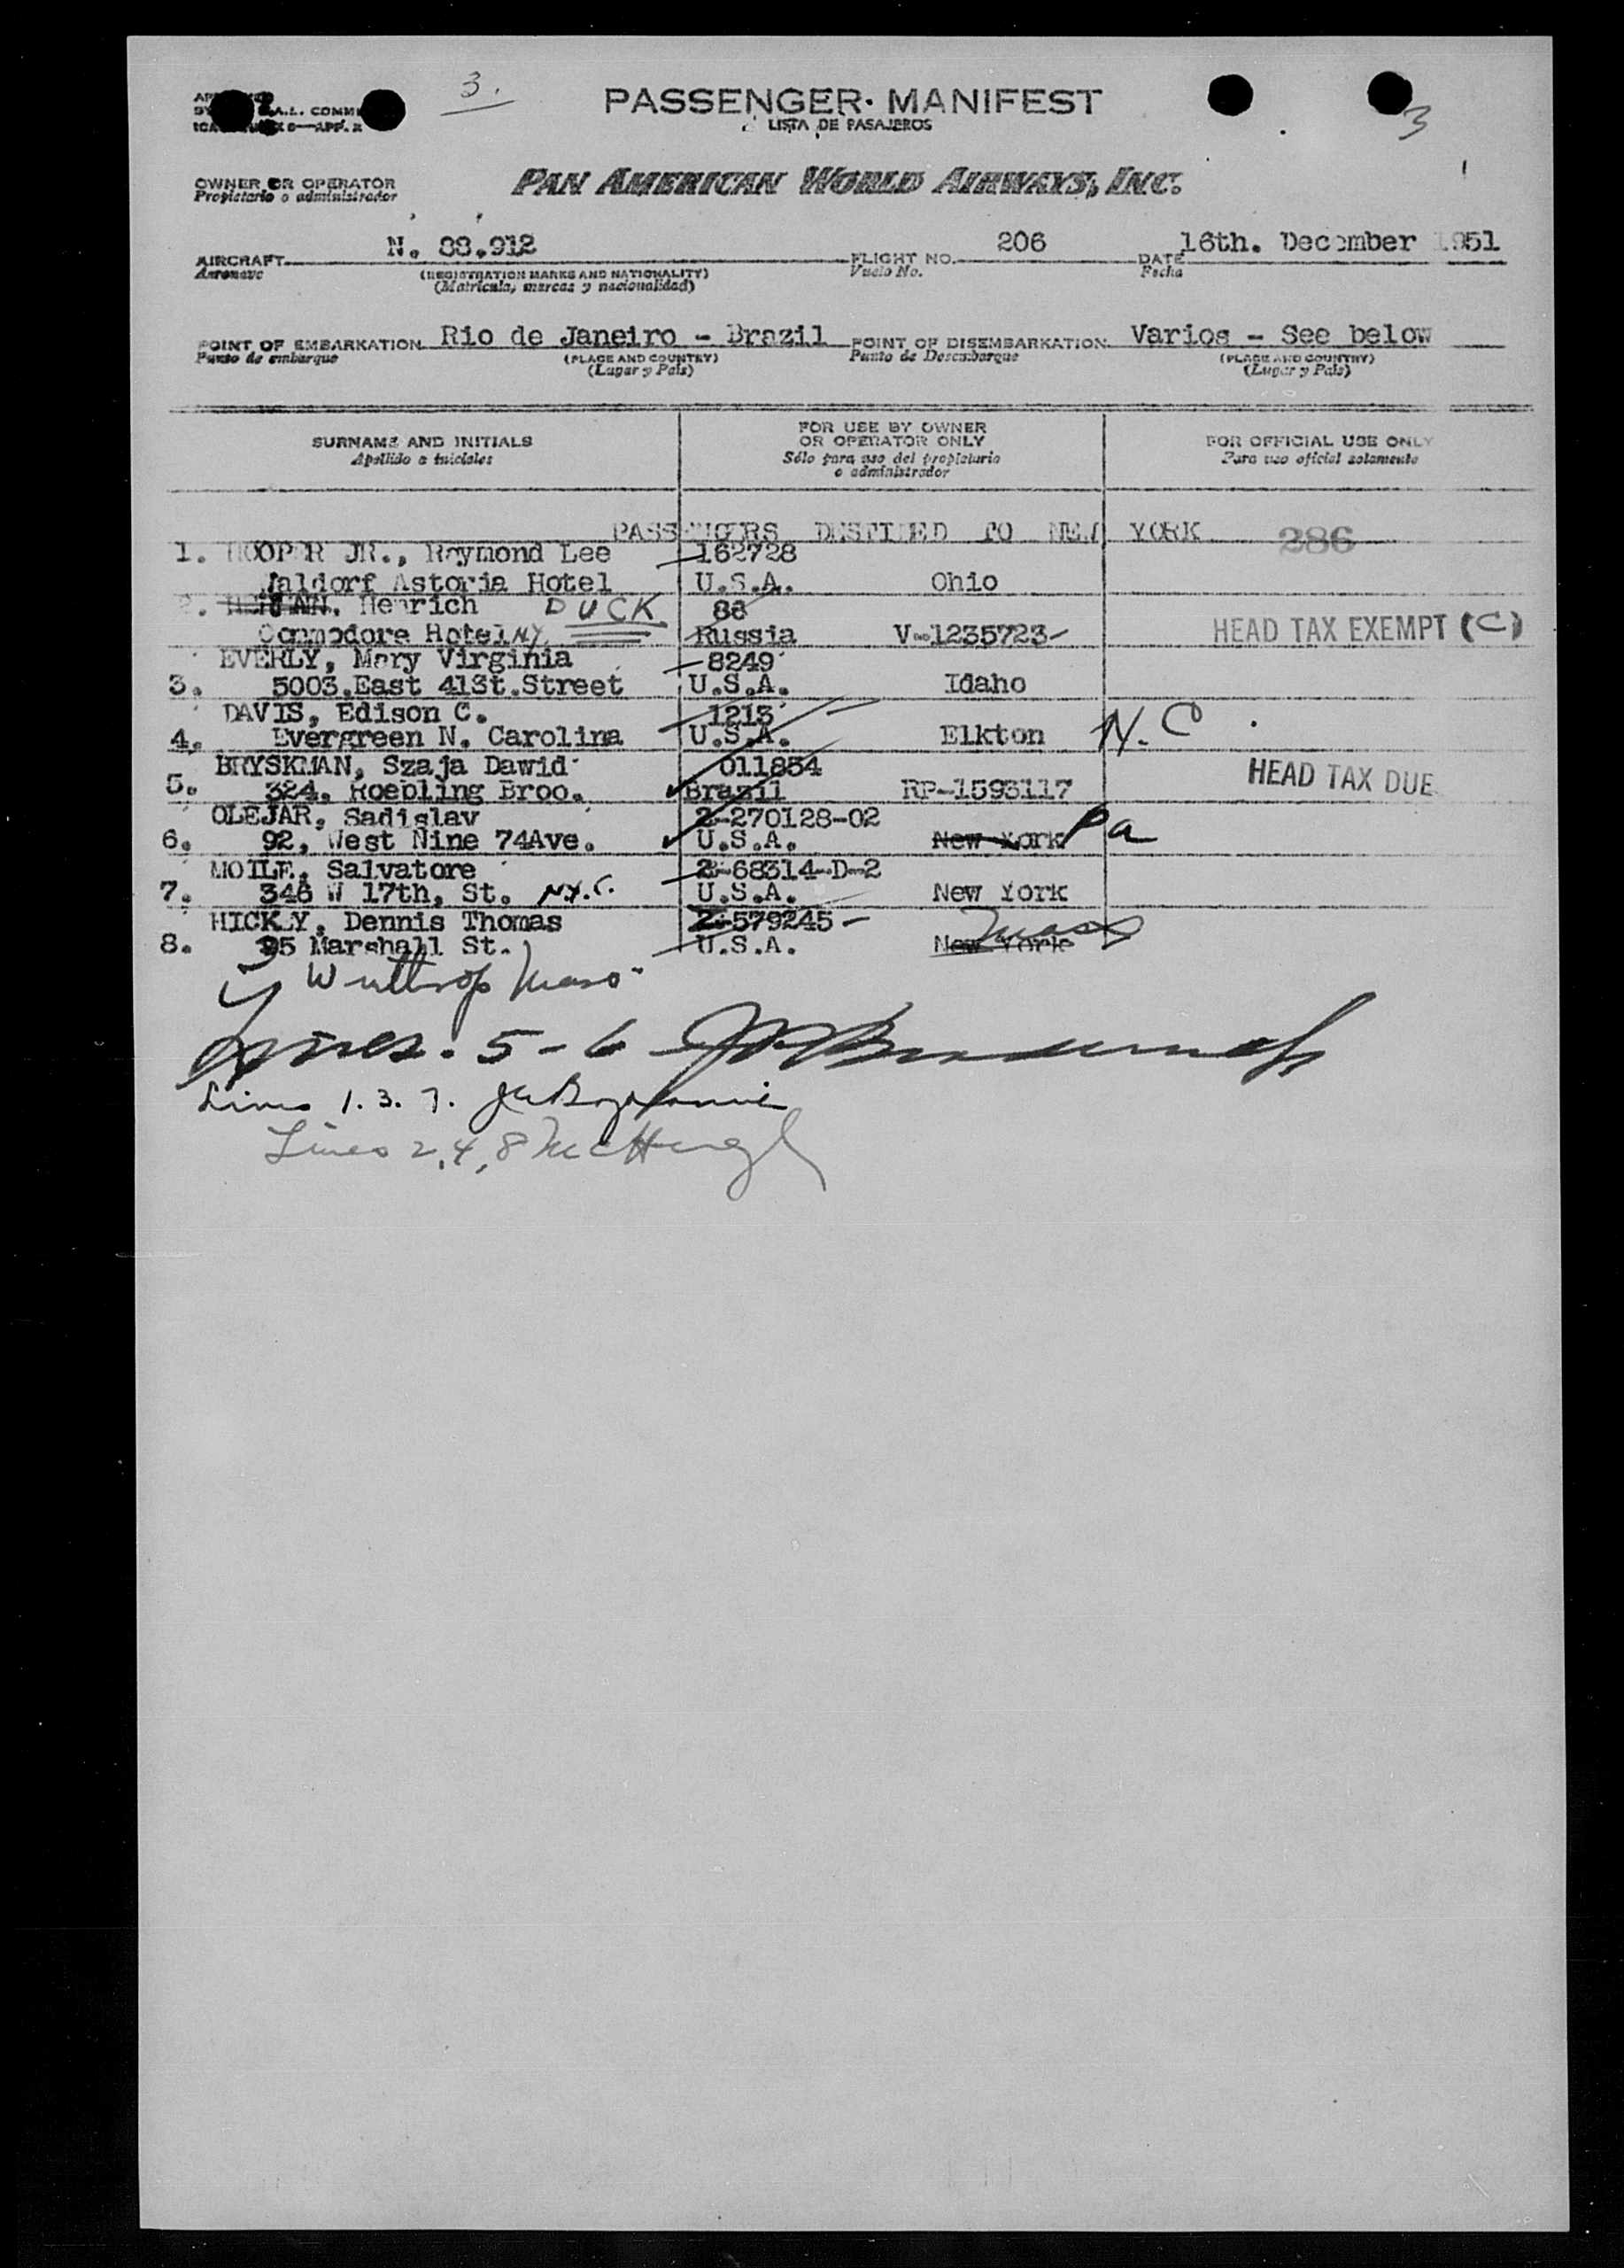 3.
PASSENGER MANIFEST
LISTA DE PASAJEROS
3
OWNER OR OPERATOR
Propietario o administrador
PAN AMERICAN WORLD AIRWAYS, INC.
AIRCRAFT N. 88.912 FLIGHT NO. 206 DATE 16th. December 1951
Aeronave (REGISTRATION MARKS AND NATIONALITY) Vuelo No. Fecha
(Matricula, marcas y nacionalidad)
POINT OF EMBARKATION Rio de Janeiro - Brazil POINT OF DISEMBARKATION Varios - See below
Punto de embarque (PLACE AND COUNTRY) Punto de Desembarque (PLACE AND COUNTRY)
(Lugar y País) (Lugar y País)
SURNAME AND INITIALS
Apellido e iniciales
FOR USE BY OWNER
OR OPERATOR ONLY
Sólo para uso del propietario
o administrador
FOR OFFICIAL USE ONLY
Para uso oficial solamente
PASSENGERS DESTINED TO NEW YORK 286
1. HOOPER JR., Raymond Lee 162728
Waldorf Astoria Hotel U.S.A. Ohio
2. Henrich DUCK 88
Commodore Hotel NY. Russia V-1235723- HEAD TAX EXEMPT (C)
EVERLY, Mary Virginia 8249
3. 5003.East 41St.Street U.S.A. Idaho
DAVIS, Edison C. 1213
4. Evergreen N. Carolina U.S.A. Elkton N.C.
BRYSKMAN, Szaja Dawid 011854
5. 324. Roebling Broo. Brazil RP-1593117 HEAD TAX DUE
OLEJAR, Sadislav 2-270128-02
6. 92, West Nine 74Ave. U.S.A. New York Pa
MOILE, Salvatore 2-68314-D-2
7. 346 W 17th, St. N.Y.C. U.S.A. New York
HICKEY, Dennis Thomas 2-579245-
8. 95 Marshall St. U.S.A. New York Mass
Winthrop Mass
Lines. 5-6
Lines 1.3.7.
Lines 2,4,8 McHugh